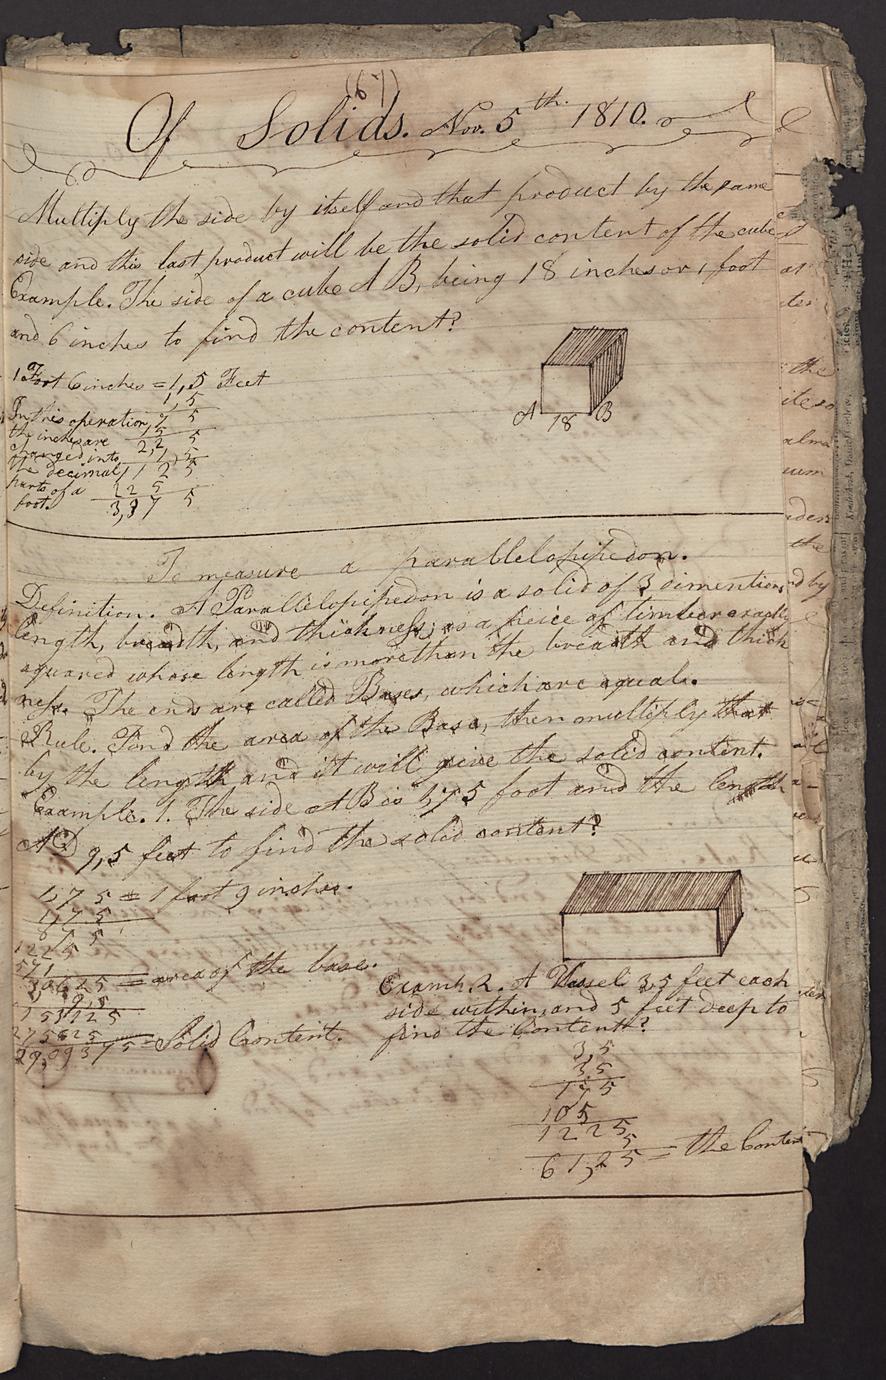 (67)
Of Solids. Nov. 5th. 1810.
Multiply the side by itself and that product by the same
side and this last product will be the solid content of the cube
Example. The side of a cube A B, being 18 inches or 1 foot
and 6 inches to find the content?
1 Foot 6 inches = 1,5 Feet
1,5
In this operation, 7 5
the inches are 1 5
changed into 2,2 5
the decimal 1 1 2 5
parts of a 2 2 5
foot. 3,3 7 5
A 18 B
To measure a parallelopipedon.
Definition. A Parallelopipedon is a solid of 3 dimentions
length, breadth, and thickness; as a peice of timber exactly
squared whose length is more than the breadth and thick
ness. The ends are called Bases, which are equal.
Rule. Find the area of the Base, then multiply that
by the length and it will give the solid content.
Example. 1. The side A B is 1,75 foot and the length
A D 9,5 feet to find the solid content?
1,7 5 = 1 foot 9 inches.
1,7 5
8 7 5
1 2 2 5
3,0 6 2 5 = area of the base.
9,5
1 5 3 1 2 5
2 7 5 6 2 5
29,09375 = Solid Content.
Examp. 2. A Vessel 3,5 feet each
side within, and 5 feet deep to
find the Content?
3,5
3,5
1 7 5
1 0 5
1 2 2 5
5
6 1,2 5 = the Content